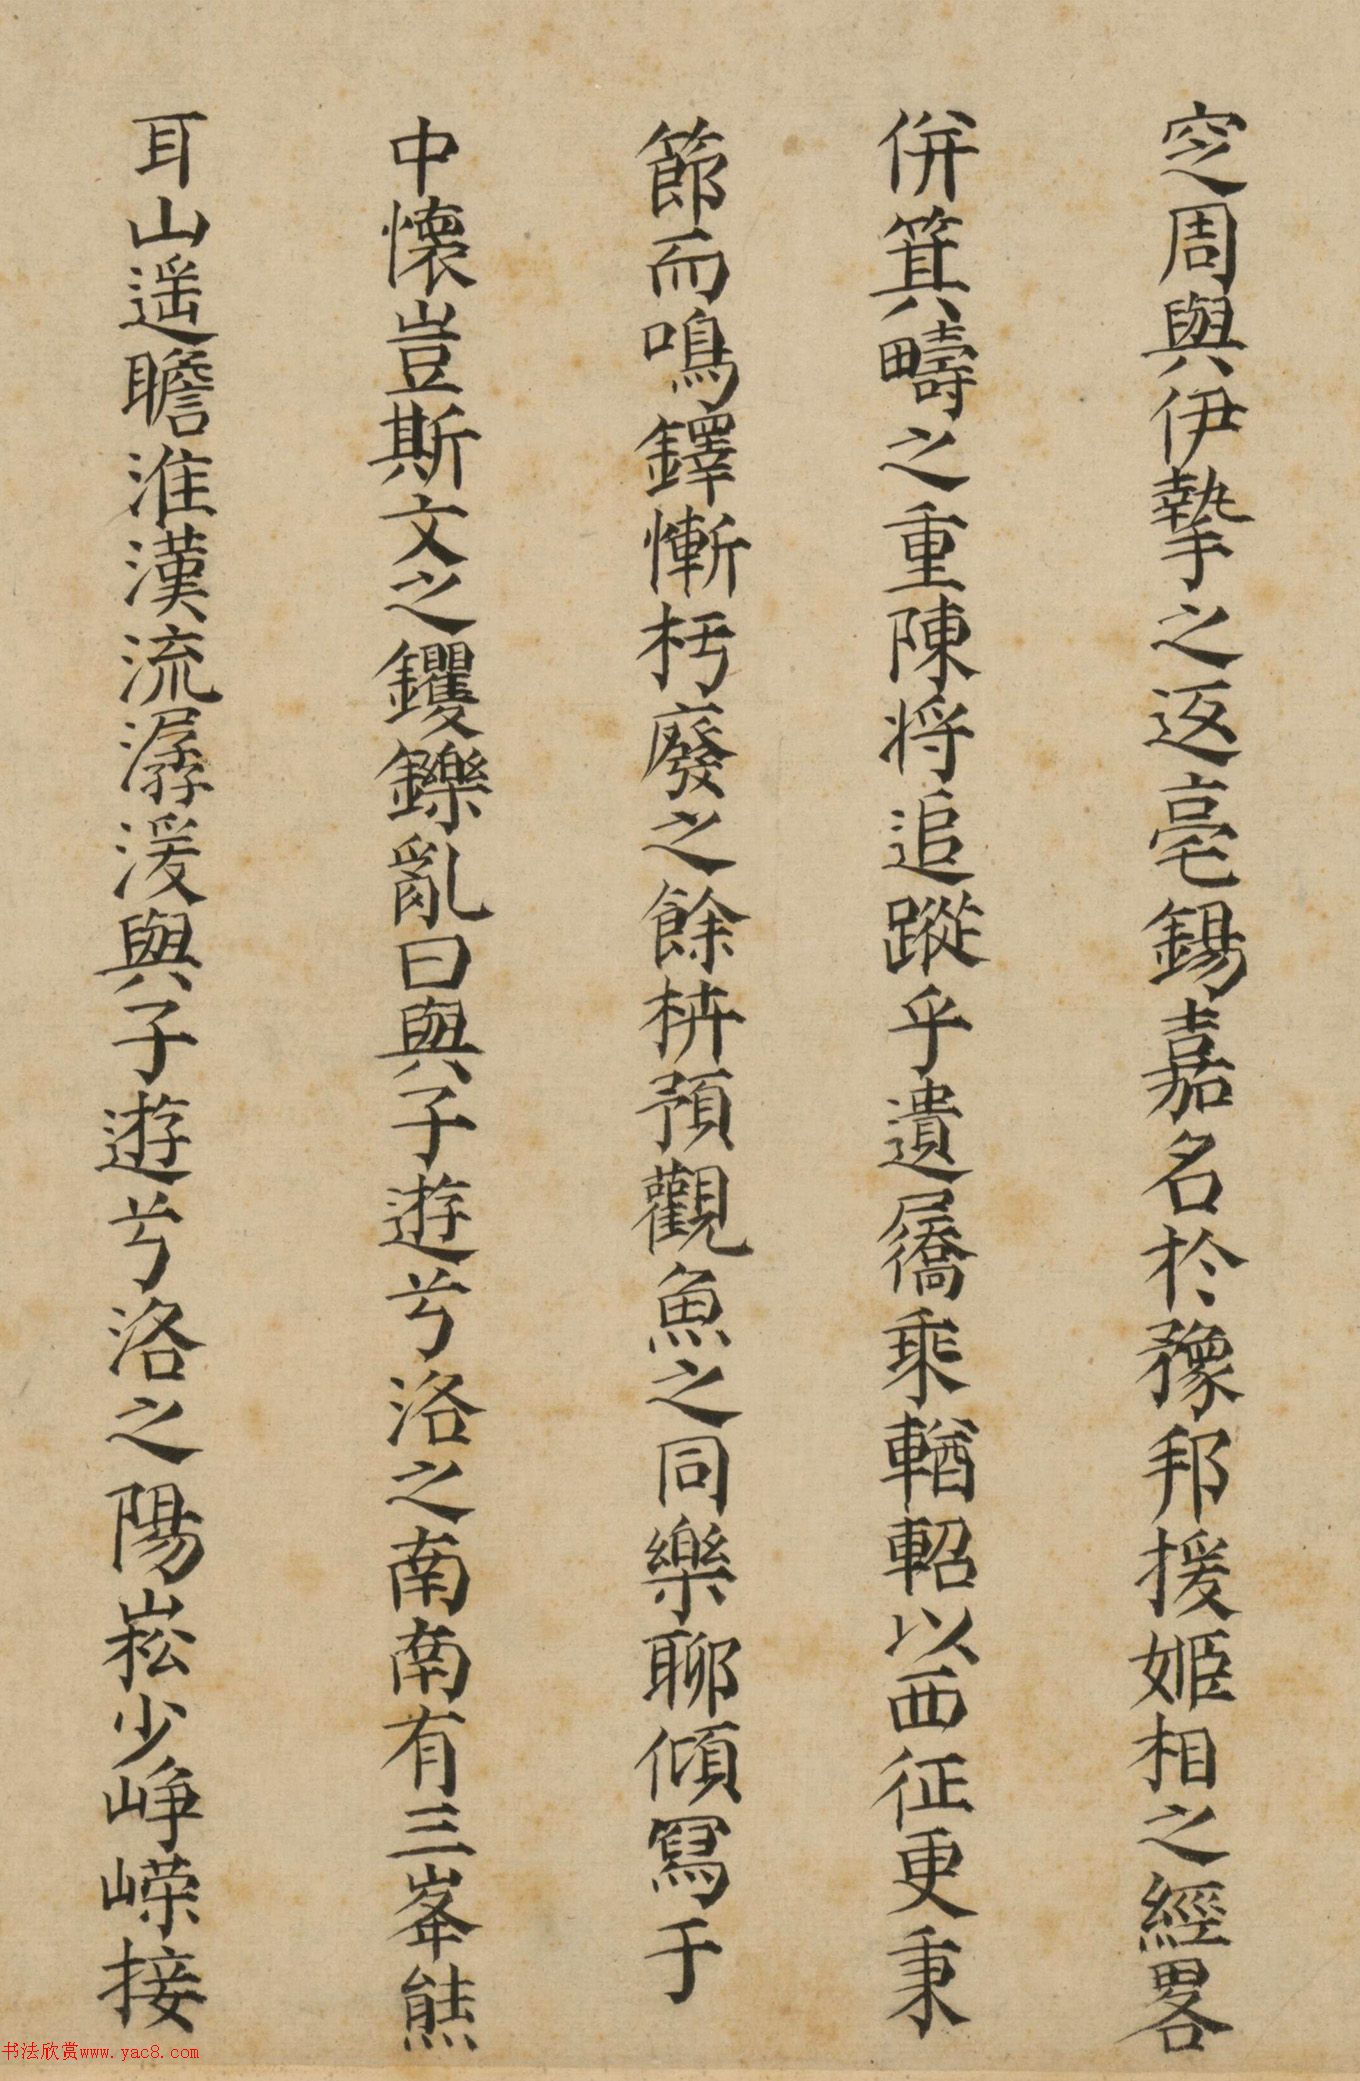 之周與伊摯之返亳錫嘉名於豫邦援姬相之經畧
併箕疇之重陳將追蹤乎遺屩乘輶軺以西征更秉
節而鳴鐸慚朽廢之餘枿預觀魚之同樂聊傾寫于
中懷豈斯文之钁鑠亂曰與子遊兮洛之南南有三峯熊
耳山遥瞻淮漢流潺湲與子遊兮洛之陽崧少崢嶸接
书法欣赏www.yac8.com